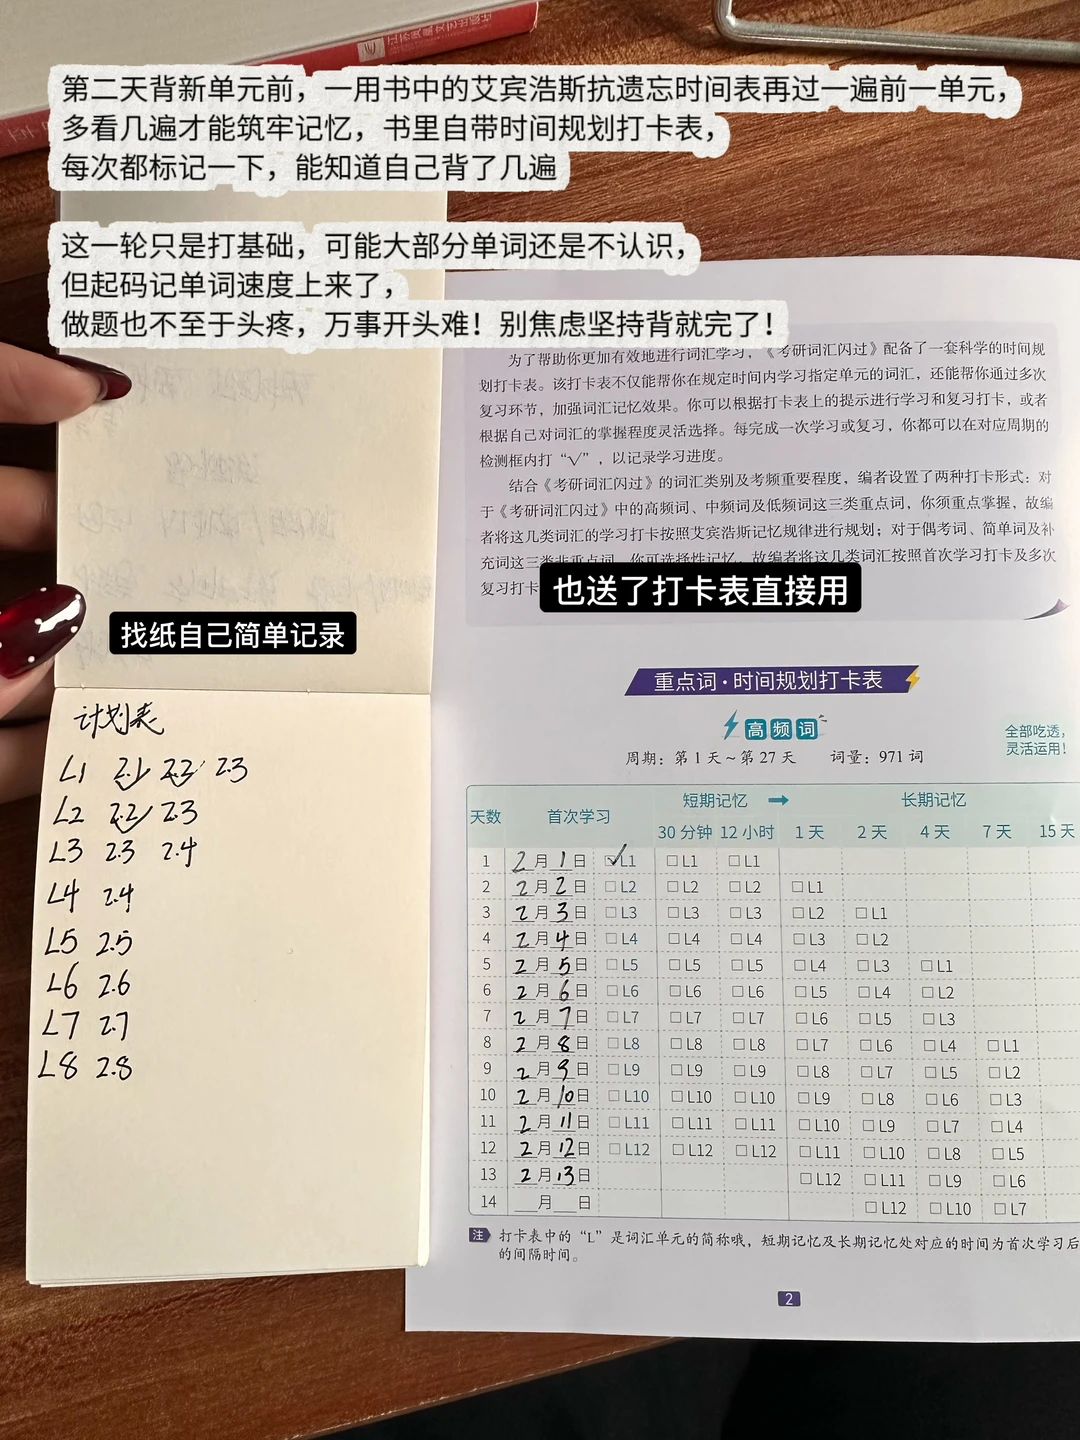 江苏凤凰文艺出版社
第二天背新单元前，一用书中的艾宾浩斯抗遗忘时间表再过一遍前一单元，
多看几遍才能筑牢记忆，书里自带时间规划打卡表，
每次都标记一下，能知道自己背了几遍
这一轮只是打基础，可能大部分单词还是不认识，
但起码记单词速度上来了，
做题也不至于头疼，万事开头难！别焦虑坚持背就完了！
找纸自己简单记录
计划表
L1 2.1√ 2.2√ 2.3
L2 2.2√ 2.3
L3 2.3 2.4
L4 2.4
L5 2.5
L6 2.6
L7 2.7
L8 2.8
为了帮助你更加有效地进行词汇学习，《考研词汇闪过》配备了一套科学的时间规
划打卡表。该打卡表不仅能帮你在规定时间内学习指定单元的词汇，还能帮你通过多次
复习环节，加强词汇记忆效果。你可以根据打卡表上的提示进行学习和复习打卡，或者
根据自己对词汇的掌握程度灵活选择。每完成一次学习或复习，你都可以在对应周期的
检测框内打“√”，以记录学习进度。
结合《考研词汇闪过》的词汇类别及考频重要程度，编者设置了两种打卡形式：对
于《考研词汇闪过》中的高频词、中频词及低频词这三类重点词，你须重点掌握，故编
者将这几类词汇的学习打卡按照艾宾浩斯记忆规律进行规划；对于偶考词、简单词及补
充词这三类非重点词，你可选择性记忆，故编者将这几类词汇按照首次学习打卡及多次
复习打卡
也送了打卡表直接用
重点词·时间规划打卡表
高频词
全部吃透，
灵活运用！
周期：第 1 天~第 27 天 词量：971 词
天数 首次学习 短期记忆 → 长期记忆
30 分钟 12 小时 1 天 2 天 4 天 7 天 15 天
1 2月1日 ☑L1 □L1 □L1
2 2月2日 □L2 □L2 □L2 □L1
3 2月3日 □L3 □L3 □L3 □L2 □L1
4 2月4日 □L4 □L4 □L4 □L3 □L2
5 2月5日 □L5 □L5 □L5 □L4 □L3 □L1
6 2月6日 □L6 □L6 □L6 □L5 □L4 □L2
7 2月7日 □L7 □L7 □L7 □L6 □L5 □L3
8 2月8日 □L8 □L8 □L8 □L7 □L6 □L4 □L1
9 2月9日 □L9 □L9 □L9 □L8 □L7 □L5 □L2
10 2月10日 □L10 □L10 □L10 □L9 □L8 □L6 □L3
11 2月11日 □L11 □L11 □L11 □L10 □L9 □L7 □L4
12 2月12日 □L12 □L12 □L12 □L11 □L10 □L8 □L5
13 2月13日 □L12 □L11 □L9 □L6
14 __月__日 □L12 □L10 □L7
注 打卡表中的“L”是词汇单元的简称哦，短期记忆及长期记忆处对应的时间为首次学习后
的间隔时间。
2